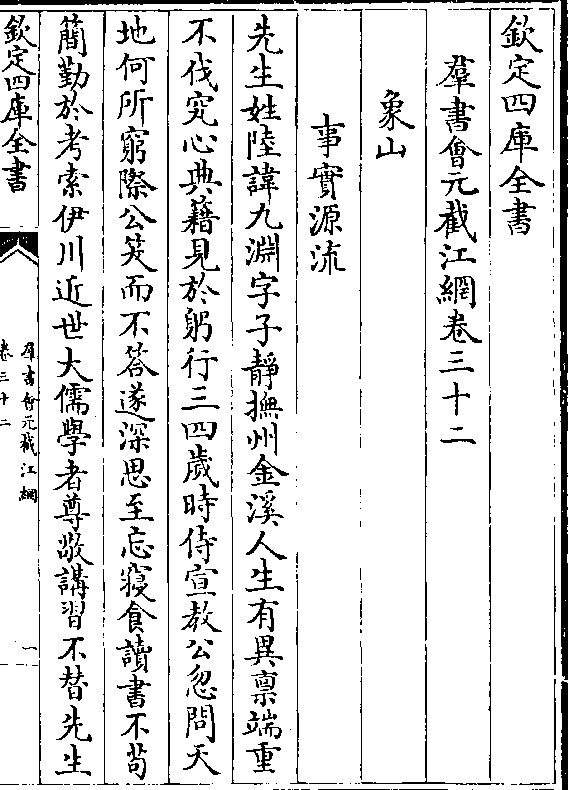 欽定四庫全書
羣書會元截江網卷三十二
象山
事實源流
先生姓陸諱九淵字子靜撫州金溪人生有異禀端重
不伐究心典籍見於躬行三四歲時侍宣教公忽問天
地何所窮際公笑而不答遂深思至忘寢食讀書不茍
簡勤於考索伊川近世大儒學者尊敬講習不替先生
欽定四庫全書
羣書會元截江網
卷三十二
一